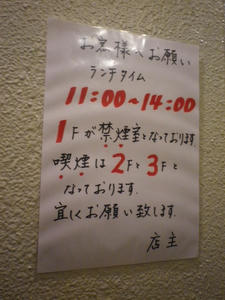 お客様へお願い
ランチタイム
11:00~14:00
1Fが禁煙室となっております
喫煙は2Fと3Fと
なっております.
宜しくお願い致します.
店主